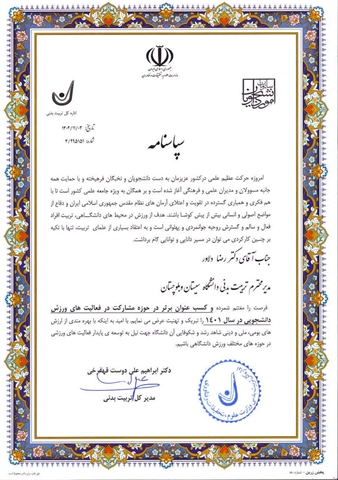 جمهوری اسلامی ایران
وزارت علوم، تحقیقات و فناوری
اداره کل تربیت بدنی
تاریخ:
شماره:
سپاسنامه
امروزه حرکت عظیم علمی درکشور عزیزمان به دست دانشجویان و نخبگان فرهیخته و با حمایت همه
جانبه مسوولان و مدیران علمی و فرهنگی آغاز شده است و بر همگان به ویژه جامعه علمی کشور است تا با
هم فکری و همیاری گسترده در تقویت و اعتلای آرمان های نظام مقدس جمهوری اسلامی ایران و دفاع از
مواضع اصولی و انسانی بیش از پیش کوشا باشند. هدف از ورزش در محیط های دانشگاهی، تربیت افراد
فعال و سالم و گسترش روحیه جوانمردی و پهلوانی است و به اعتقاد بسیاری از علمای تربیت، تنها با تکیه
بر چنین کارکردی می توان در مسیر دانایی و توانایی گام برداشت.
جناب آقای دکتر رضا دلاور
مدیر محترم تربیت بدنی دانشگاه سیستان و بلوچستان
فرصت را مغتنم شمرده و کسب عنوان برتر در حوزه مشارکت در فعالیت های ورزش
دانشجویی در سال ۱۴۰۱ را تبریک و تهنیت عرض می نمایم. با امید به اینکه با بهره مندی از ارزش
های بومی، ملی و دینی شاهد رشد و شکوفایی آن دانشگاه جهت نیل به توسعه ی پایدار فعالیت های ورزشی
در حوزه های مختلف ورزش دانشگاهی باشیم.
دکتر ابراهیم علی دوست قهفرخی
مدیر کل تربیت بدنی